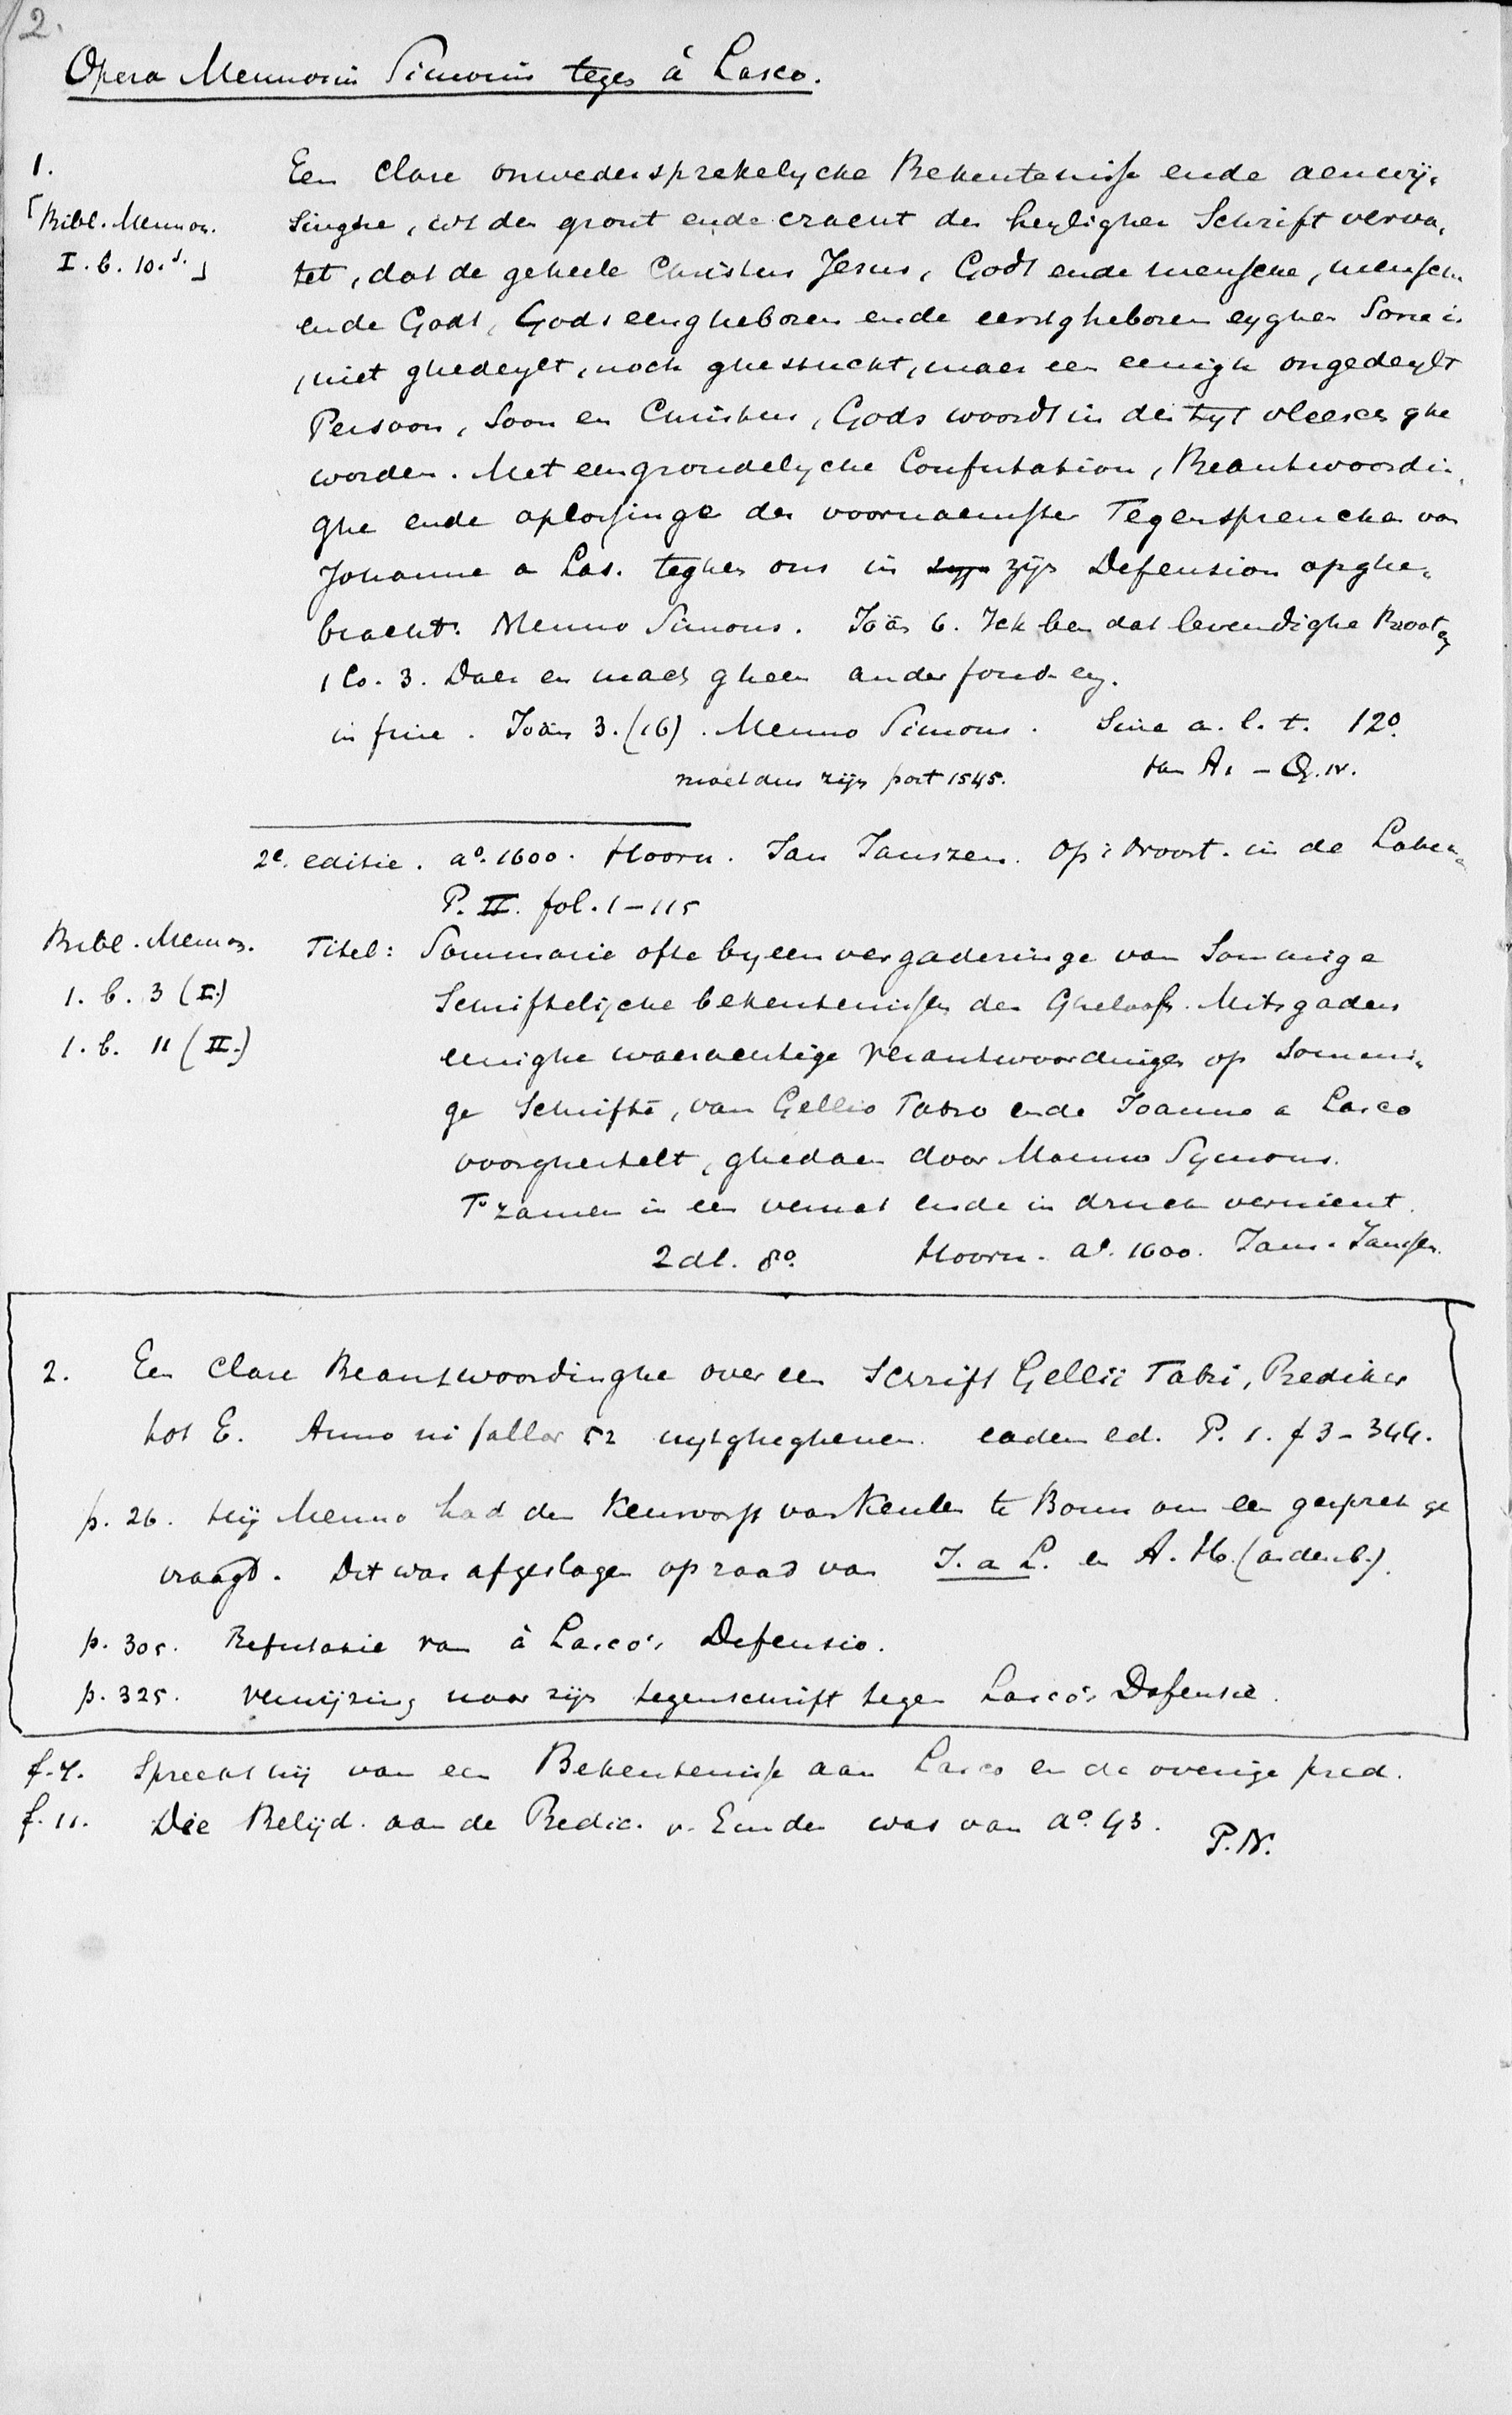 2.
Opera Mennonis Simonis tegen à Lasco.
1.
Een clare onwedersprekelycke Bekentenisse ende aenwij-
[Bibl. Mennon.
singhe, wt den gront ende cracht der heylighen Schrift verva-
I. b. 10.d.]
tet, dat de geheele Christus Jesus, Godt ende mensche, mensche
ende Godt, Gods eengheboren ende eerstgheboren eyghen Sone is
, niet ghedeylt, noch ghestuckt, maer een eenigh ongedeylt
Persoon, Soon en Christus, Gods woordt in der tyt vleesch ghe
worden. Met een grondelycke Confutation, Beantwoordin-
ghe ende oplossinge der voornaemster Tegenspreucken van
Johanne a Las. teghen ons in zijn Defension opghe-
bracht. Menno Simons. Joãn 6. Ick ben dat levendighe Broot
1 Co. 3. Daer en mach gheen ander fond.
in fine. Joãn 3. (16). Menno Simons. Sine a. l. t. 12o.
moet dus zijn post 1545.
van A1 – Q. IV.
2e. editie. ao. 1600. Hoorn. Jan Janszen. Op 't Noort. in de
P. II. fol. 1–115
Bibl. Mennon.
Titel: Sommarie ofte byeenvergaderinge van Sommige
1. b. 3 (I.)
Schriftelijcke bekentenissen des Gheloofs. Mitsgaders
1. b. 11 (II.)
eenighe waerachtige Verantwoordinges op Sommi-
ge Schriftē, van Gellio Fabro ende Joanno a Lasco
voorghestelt, ghedaen door Menno Symons.
T'zamen in een vervat ende in druck vernieut.
2 dl. 8o. Hoorn. ao. 1600. Jan. Janssen.
2. Een clare Beantwoordinghe over een Schrift Gellii Fabri, Prediker
tot E. Anno ni fallor 52 uytghegheven. eadem ed. P. 1. f 3–344.
p. 26. Hij Menno had den Keurvorst van Keulen te Bonn om een gesprek ge
vraagd. Dit was afgeslagen op raad van J. a L. en A. H. (ardenb.).
p. 305. Refutatie van à Lasco's Defensio.
p. 325. verwijzing naar zijn tegenschrift tegen Lasco's Defensie.
f. 4. Spreekt hij van een Bekentenisse aan Lasco en de overige pred.
f. 11. Die Belijd. aan de Predic. v. Emden was van ao. 43.
P.N.